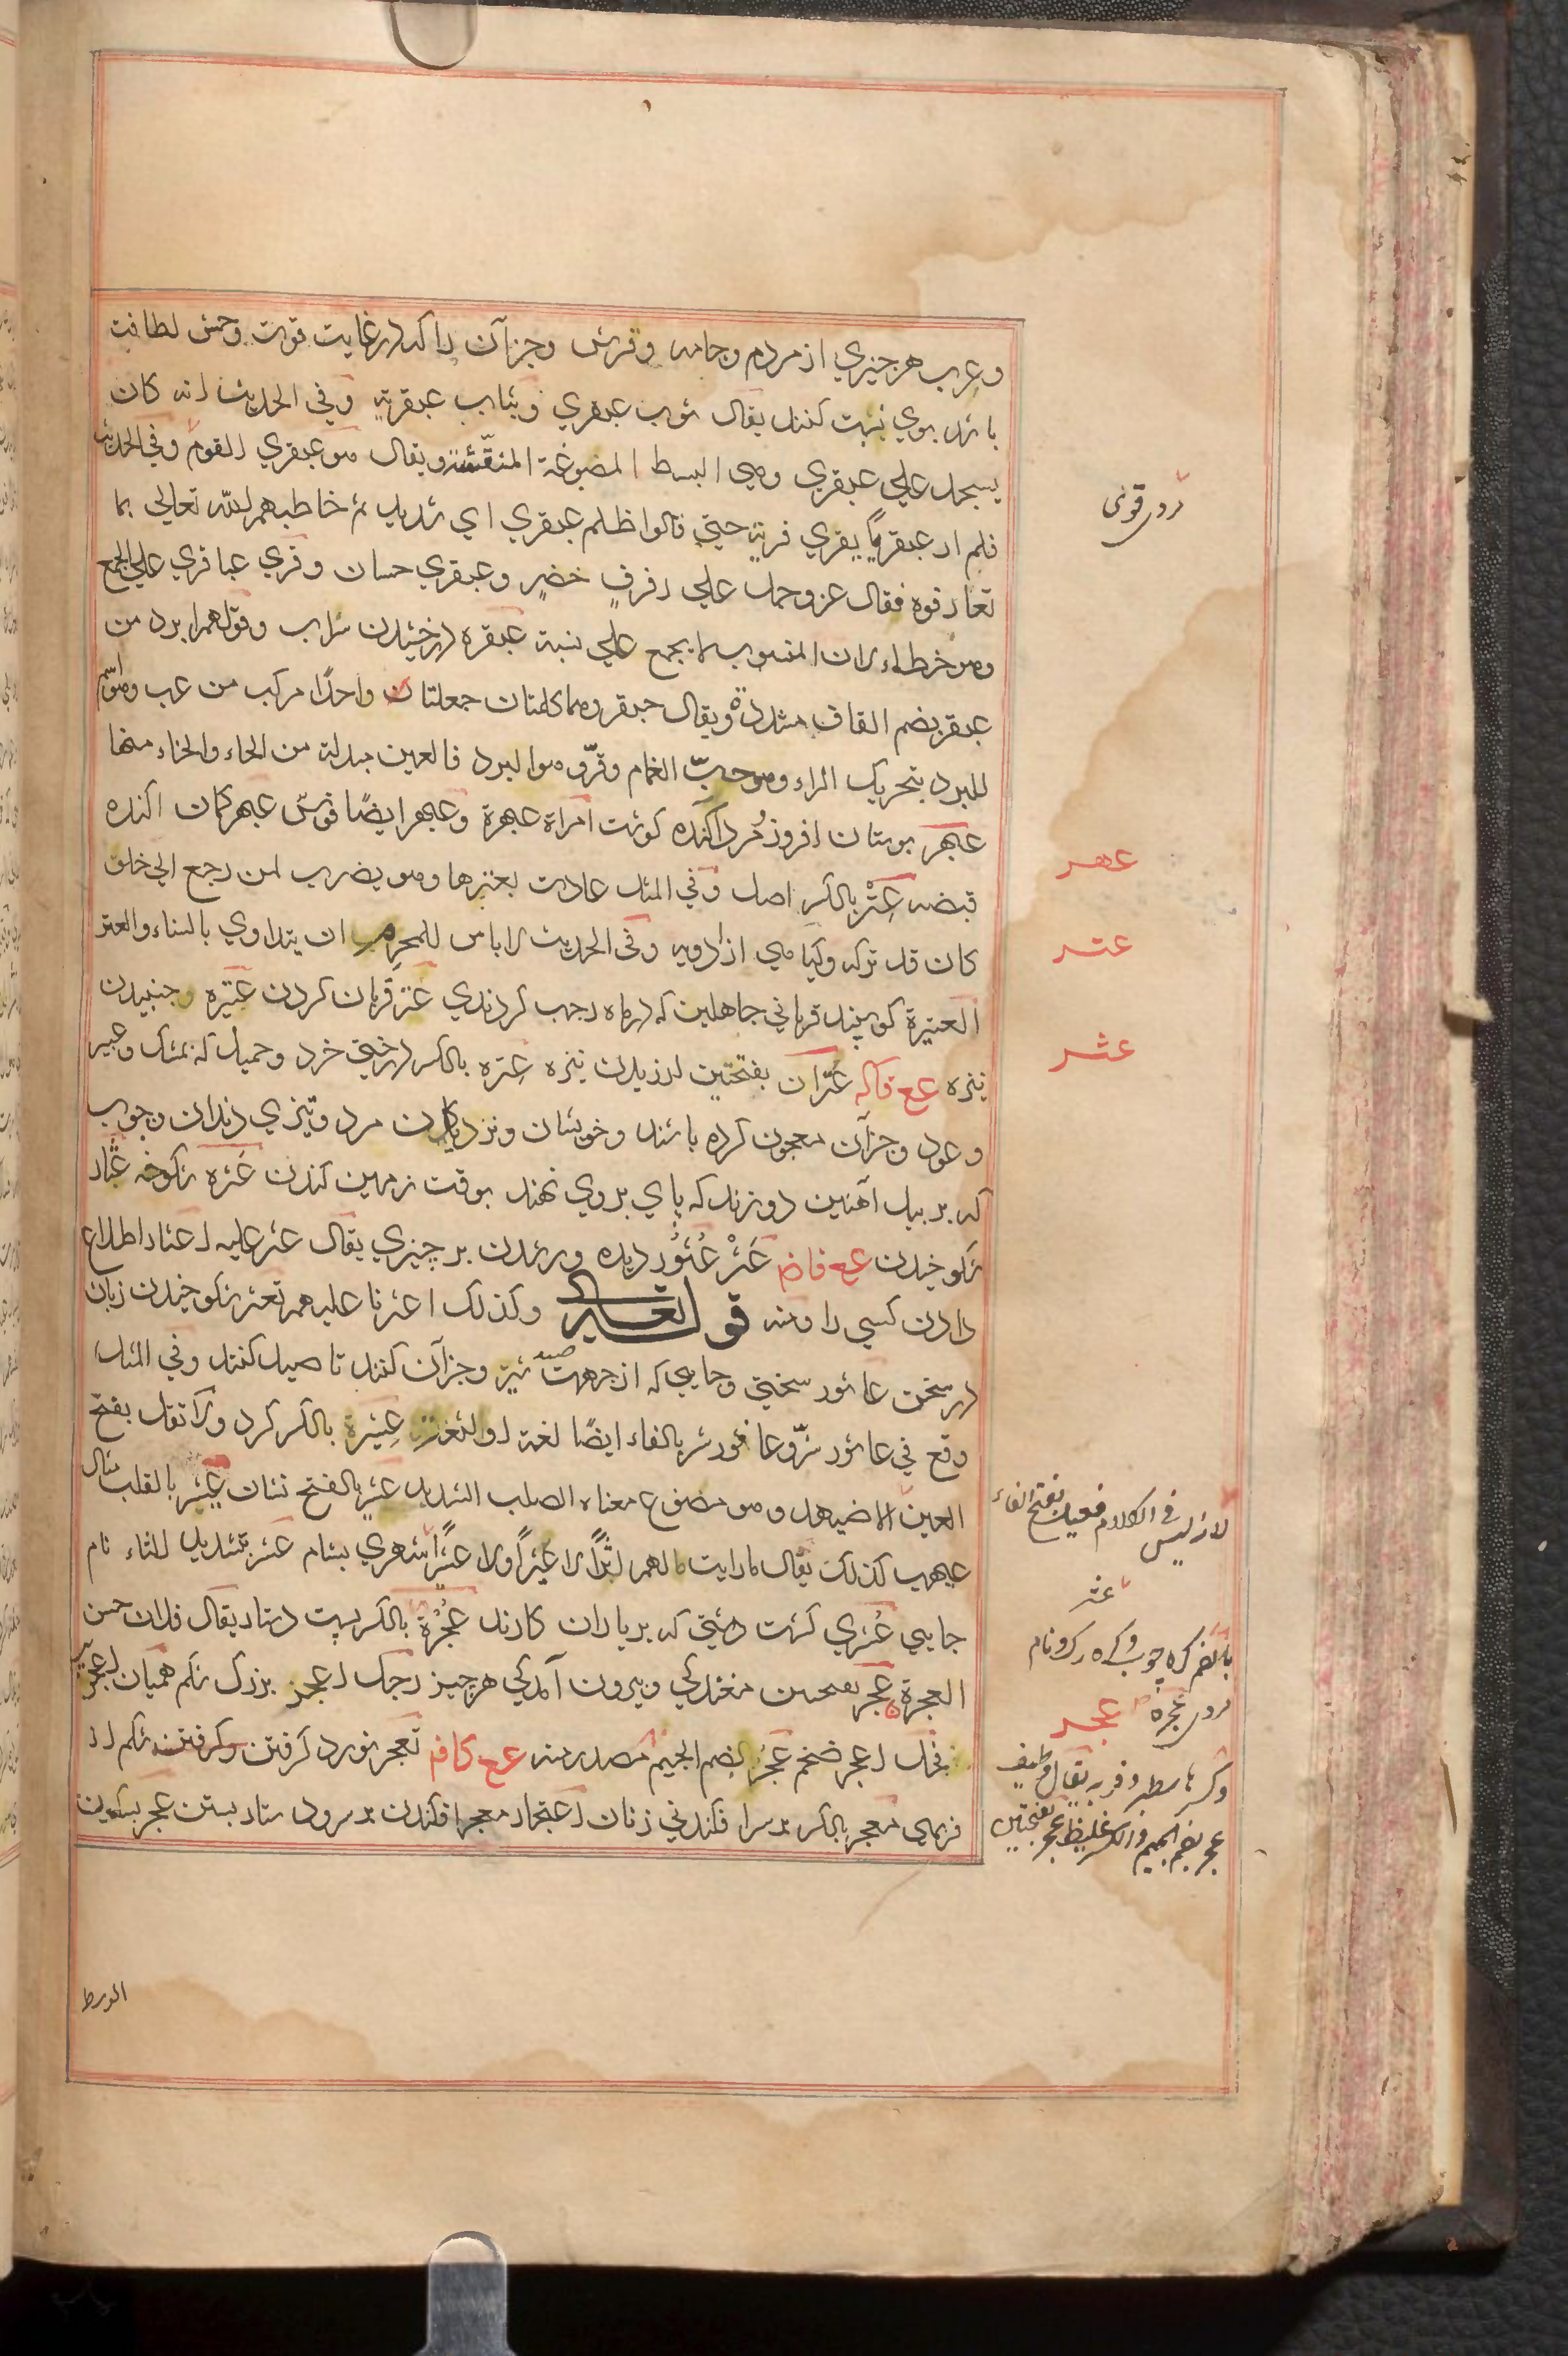 وعرب هر چيزي از مردم وجامه وفرش وجزآن را كه در غايت قوت وحسن لطافت
باشد بوي نسبت كنند يقال ثوب عبقري وثياب عبقرية وفي الحديث انه كان
يسجد علي عبقري وهي البسط المصبوغة المنقّشة ويقال هو عبقري القوم وفي الحديث
فلم ار عبقريًا يفري فريه حتي قالوا ظلم عبقري اي شديد ثم خاطبهم الله تعالي بما
تعارفوه فقال عز وجل علي رفرفٍ خضرٍ وعبقري حسان وقري عباقري علي الجمع
وهو خطاء لان المنسوب لا يجمع علي نسبة عبقره درخشيدن سراب وقولهم ابرد من
عبقر بضم القاف مشددة ويقال حبقر وهما كلمتان جعلتا واحدًا مركب من عب وهو اسم
للبرد بتحريك الراء وهو حبّ الغمام وقرّ وهو البرد فالعين مبدلة من الحاء والحاء منها
عبهر بوستان افروز مُرد آكنده كوشت امراة عبهرة وعبهر ايضًا قوس عبهر كمان اكنده
قبضه عِتْر بالكسر اصل وفي المثل عادت بعترها وهو يضرب لمن رجع الي خلق
كان قد تركه وكياهي از ادويه وفي الحديث لا باس للمحرم ان يتداوي بالسناء والعتر
العتيرة كوسپند قرباني جاهلين كه در ماه رجب كردندي عتر قربان كردن عتيره وجنبيدن
نيزه عع فاكه عُتّران بفتحتين لرزيدن نيزه عِتره بالكسر درختي خرد وحميل كه بمشك وعبير
وعود وجزآن معجون كرده باشند وخويشان ونزديكان مرد وتيزي دندان وچوب
كه بر بيل آهنين دوزند كه پاي بروي نهند بوقت زمين كندن عَثره شكوخه عثار
شكوخيدن عع فاضم عَثْر عُثُور ديده ورشدن بر چيزي يقال عثر عليه اعثار اطلاع
دادن كسي را ومنه قوله تعالي وكذلك اعثرنا عليهم تعثر شكوخيدن زبان
در سخن عاثور سختي وجايي كه از جهت صيد شير وجزآن كنند تا صيد كنند وفي المثل
وقع في عاثور شرّ وعافور شر بالفاء ايضًا لغة او لثغة عِثيَرة بالكسر كرد ولا تقل بفتح
العين الا ضيهد وهو مصنوع معناه الصلب الشديد عثير بالفتح نشان عيثر بالقلب مثال
عيهب كذلك يقال ما رايت لهم اثرًا ولا عثيرًا ولا عيثرًا شهري بشام عثر بتشديد الثاء نام
جايي عثري كشت دشتي كه بر باران كارند عُجرة بالكسر بست دستار يقال فلان حسن
العجرة عجر بفتحتين مغندكي وبيرون آمدكي هرچيز رجل اعجز بزرك شكم هميان اعجر پر
فحل اعجر ضخم عَجُر بضم الجيم مصدر منه عع كافم تعجر نورد كرفتن شكم از
فربهي معجر بالكسر بر سر افكندني زنان اعتجار معجر افكندن بر سر ودستار بستن عجر بسكون
ردل قوني
عهر
عتر
عثر
لانه ليس في الكلام فعيل بفتح الفاء
عثر
بالضم كره چوب وكره رك ونام
ردل عجره
عجر
وكسرها سطبر وفربه يقال وظيف
عجر بضم الجيم والكسر غليظ عجر بفتحتين
الورط